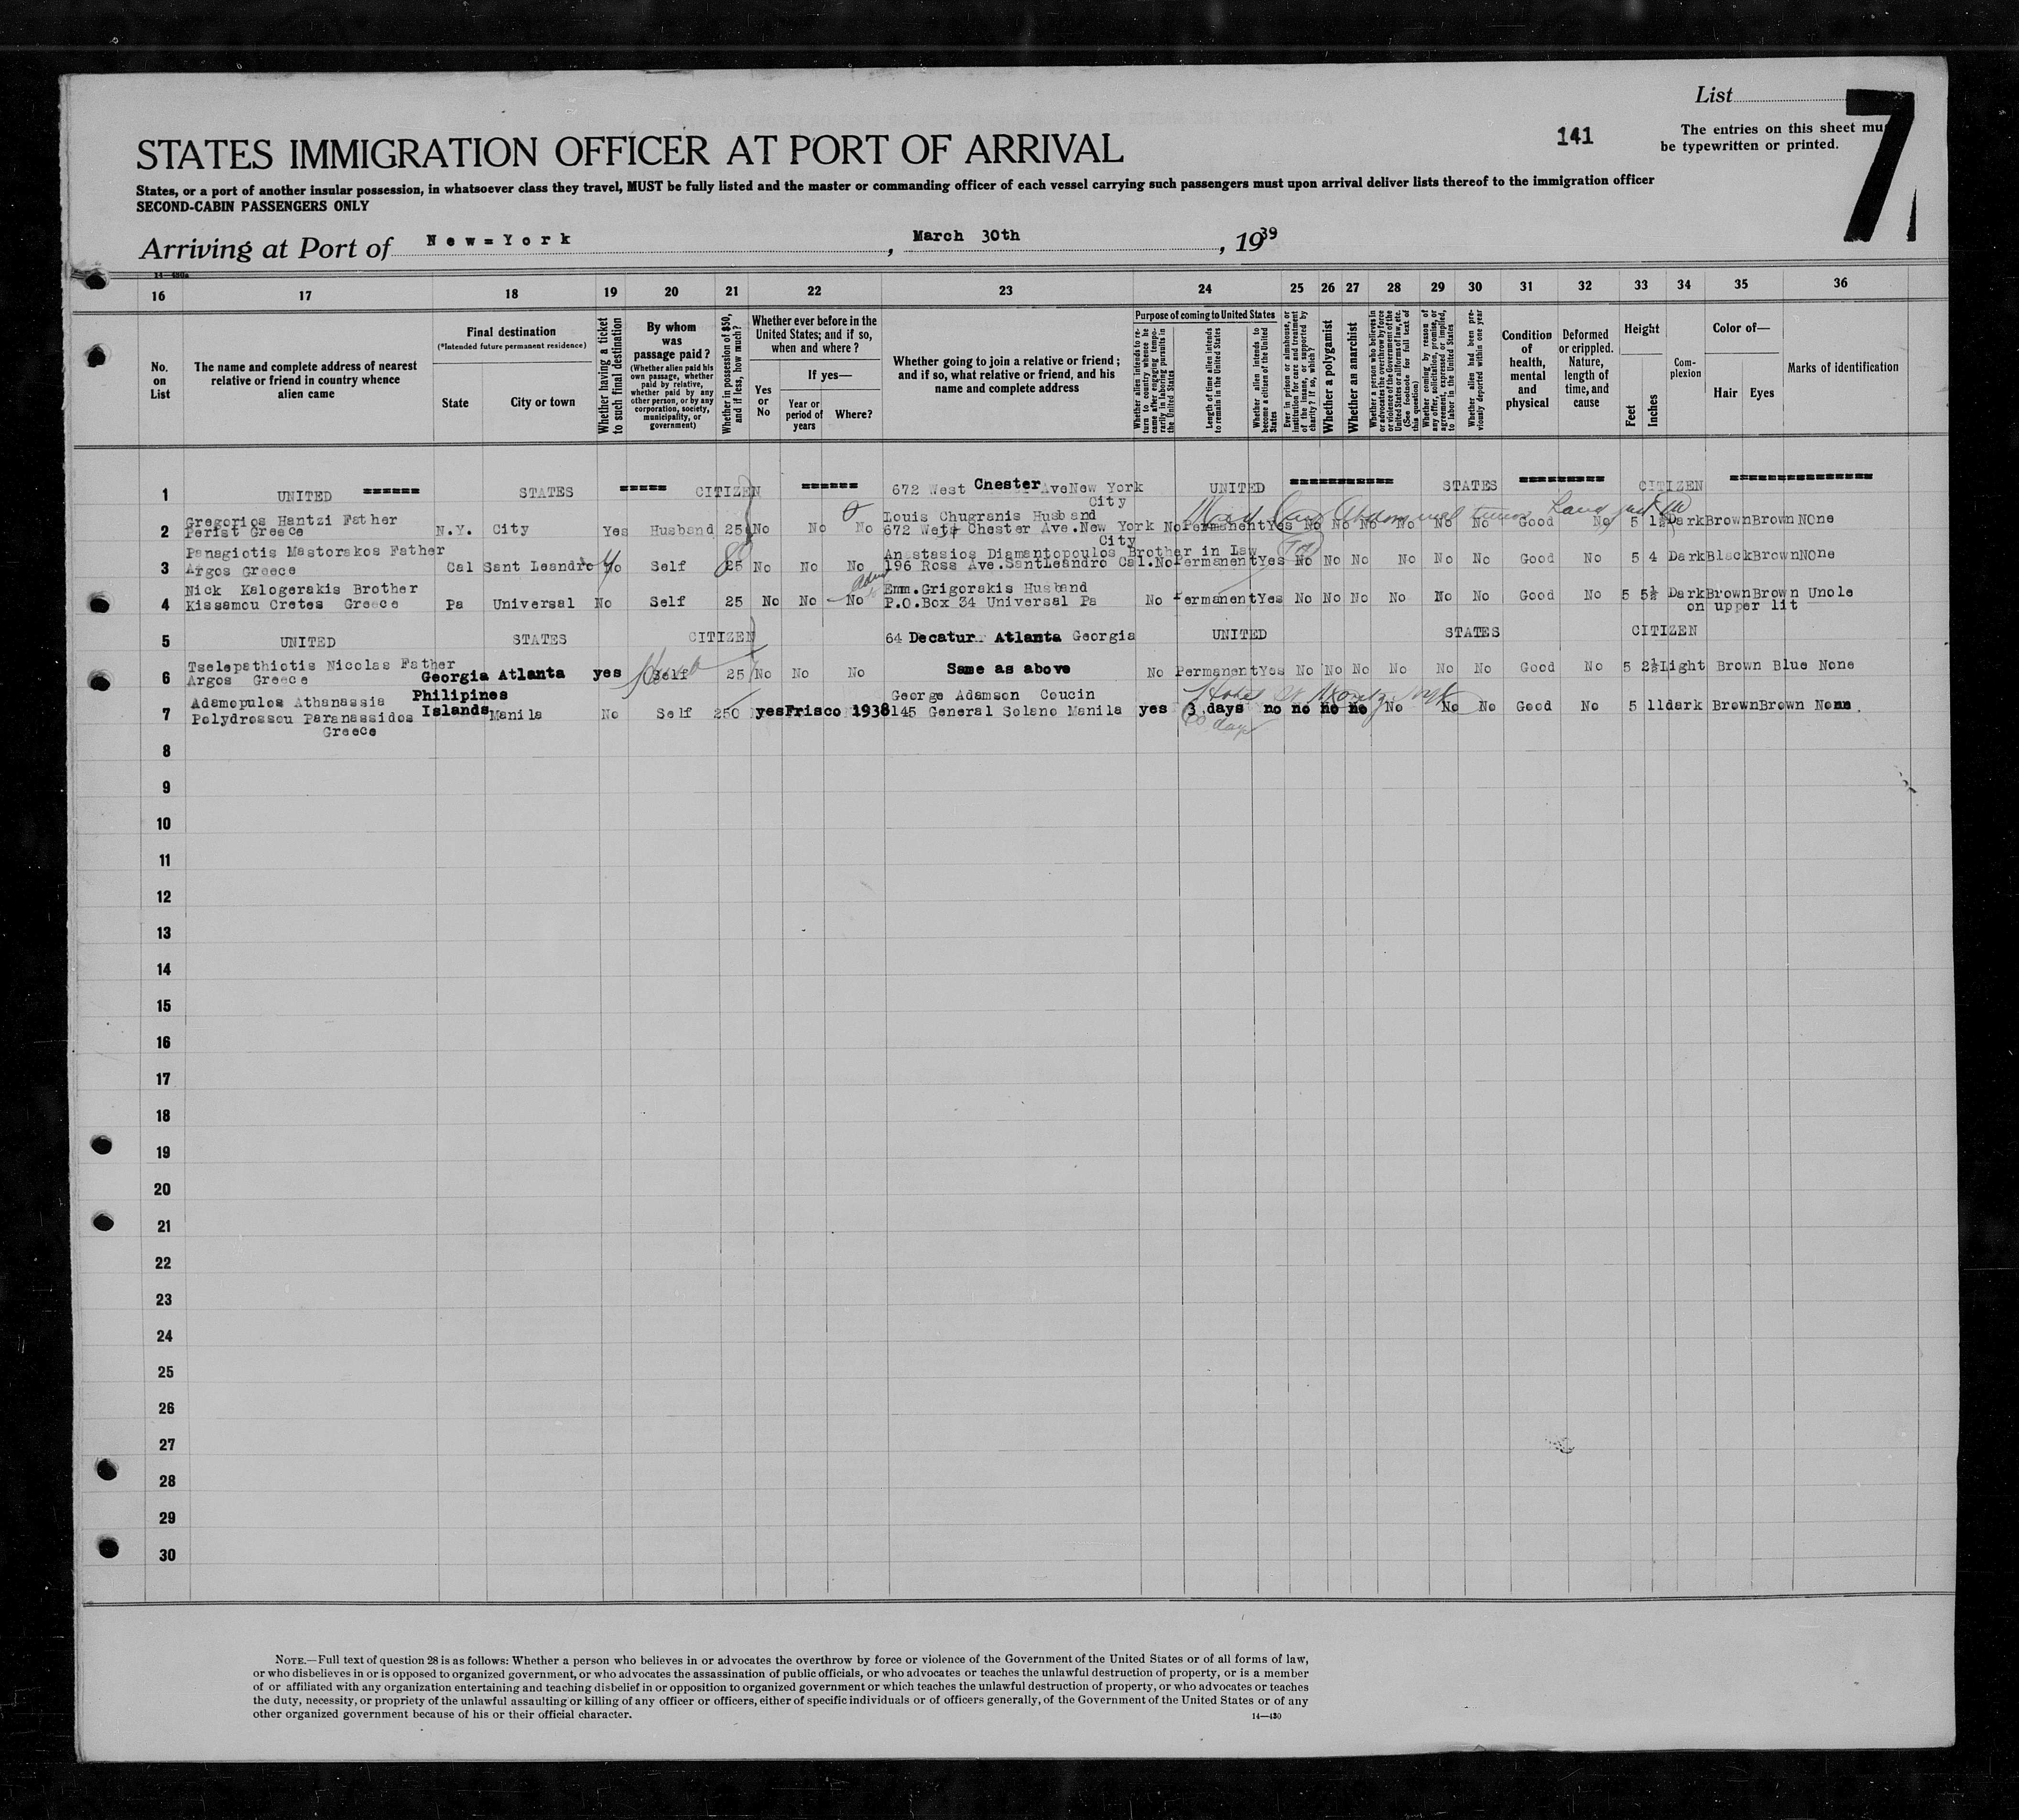 List
7
141
The entries on this sheet mu
be typewritten or printed.
STATES IMMIGRATION OFFICER AT PORT OF ARRIVAL
States, or a port of another insular possession, in whatsoever class they travel, MUST be fully listed and the master or commanding officer of each vessel carrying such passengers must upon arrival deliver lists thereof to the immigration officer
SECOND-CABIN PASSENGERS ONLY
Arriving at Port of New=York, March 30th, 1939
14—430a
16 17 18 19 20 21 22 23 24 25 26 27 28 29 30 31 32 33 34 35 36
No. on List
The name and complete address of nearest relative or friend in country whence alien came
Final destination
(*Intended future permanent residence)
State
City or town
Whether having a ticket to such final destination
By whom was passage paid?
(Whether alien paid his own passage, whether paid by relative, whether paid by any other person, or by any corporation, society, municipality, or government)
Whether in possession of $50, and if less, how much?
Whether ever before in the United States; and if so, when and where?
Yes or No
If yes—
Year or period of years
Where?
Whether going to join a relative or friend; and if so, what relative or friend, and his name and complete address
Purpose of coming to United States
Whether alien intends to return to country whence he came after engaging temporarily in laboring pursuits in the United States
Length of time alien intends to remain in the United States
Whether alien intends to become a citizen of the United States
Ever in prison or almshouse, or institution for care and treatment of the insane, or supported by charity? If so, which?
Whether a polygamist
Whether an anarchist
Whether a person who believes in or advocates the overthrow by force or violence of the Government of the United States or all forms of law, etc. (See footnote for full text of this question)
Whether coming by reason of any offer, solicitation, promise, or agreement, expressed or implied, to labor in the United States
Whether alien had been previously deported within one year
Condition of health, mental and physical
Deformed or crippled. Nature, length of time, and cause
Height
Feet
Inches
Complexion
Color of—
Hair
Eyes
Marks of identification
1 UNITED ====== STATES ===== CITIZEN ====== 672 West Chester AveNew York City UNITED =========== STATES ========= CITIZEN ===============
2 Gregorios Hantzi Father
Perist Greece N.Y. City Yes Husband 25 No No No Louis Chugranis Husband
672 West Chester Ave.New York City No Permanent Yes No No No No No No Good No 5 1½ Dark Brown Brown NOne
3 Panagiotis Mastorakos Father
Argos Greece Cal Sant Leandro No Self 25 No No No Anastasios Diamantopoulos Brother in Law
196 Ross Ave.SantLeandro Cal. No Permanent Yes No No No No No No Good No 5 4 Dark Black Brown NOne
4 Nick Kalogerakis Brother
Kissamou Cretes Greece Pa Universal No Self 25 No No No Emm.Grigorakis Husband
P.O.Box 34 Universal Pa No Permanent Yes No No No No No No Good No 5 5½ Dark Brown Brown Unole
on upper lit
5 UNITED STATES CITIZEN 64 Decatur Atlanta Georgia UNITED STATES CITIZEN
6 Tselepathiotis Nicolas Father
Argos Greece Georgia Atlanta yes Self 25 No No No Same as above No Permanent Yes No No No No No No Good No 5 2½ Light Brown Blue None
7 Adamopulos Athanassia
Polydrossou Paranassidos
Greece Philipines Islands Manila No Self 250 yes Frisco 1938 George Adamson Coucin
145 General Solano Manila yes 3 days no no no no No No No Good No 5 11 dark Brown Brown None.
60 days
8
9
10
11
12
13
14
15
16
17
18
19
20
21
22
23
24
25
26
27
28
29
30
NOTE.—Full text of question 28 is as follows: Whether a person who believes in or advocates the overthrow by force or violence of the Government of the United States or of all forms of law,
or who disbelieves in or is opposed to organized government, or who advocates the assassination of public officials, or who advocates or teaches the unlawful destruction of property, or is a member
of or affiliated with any organization entertaining and teaching disbelief in or opposition to organized government or which teaches the unlawful destruction of property, or who advocates or teaches
the duty, necessity, or propriety of the unlawful assaulting or killing of any officer or officers, either of specific individuals or of officers generally, of the Government of the United States or of any
other organized government because of his or their official character.
14—430